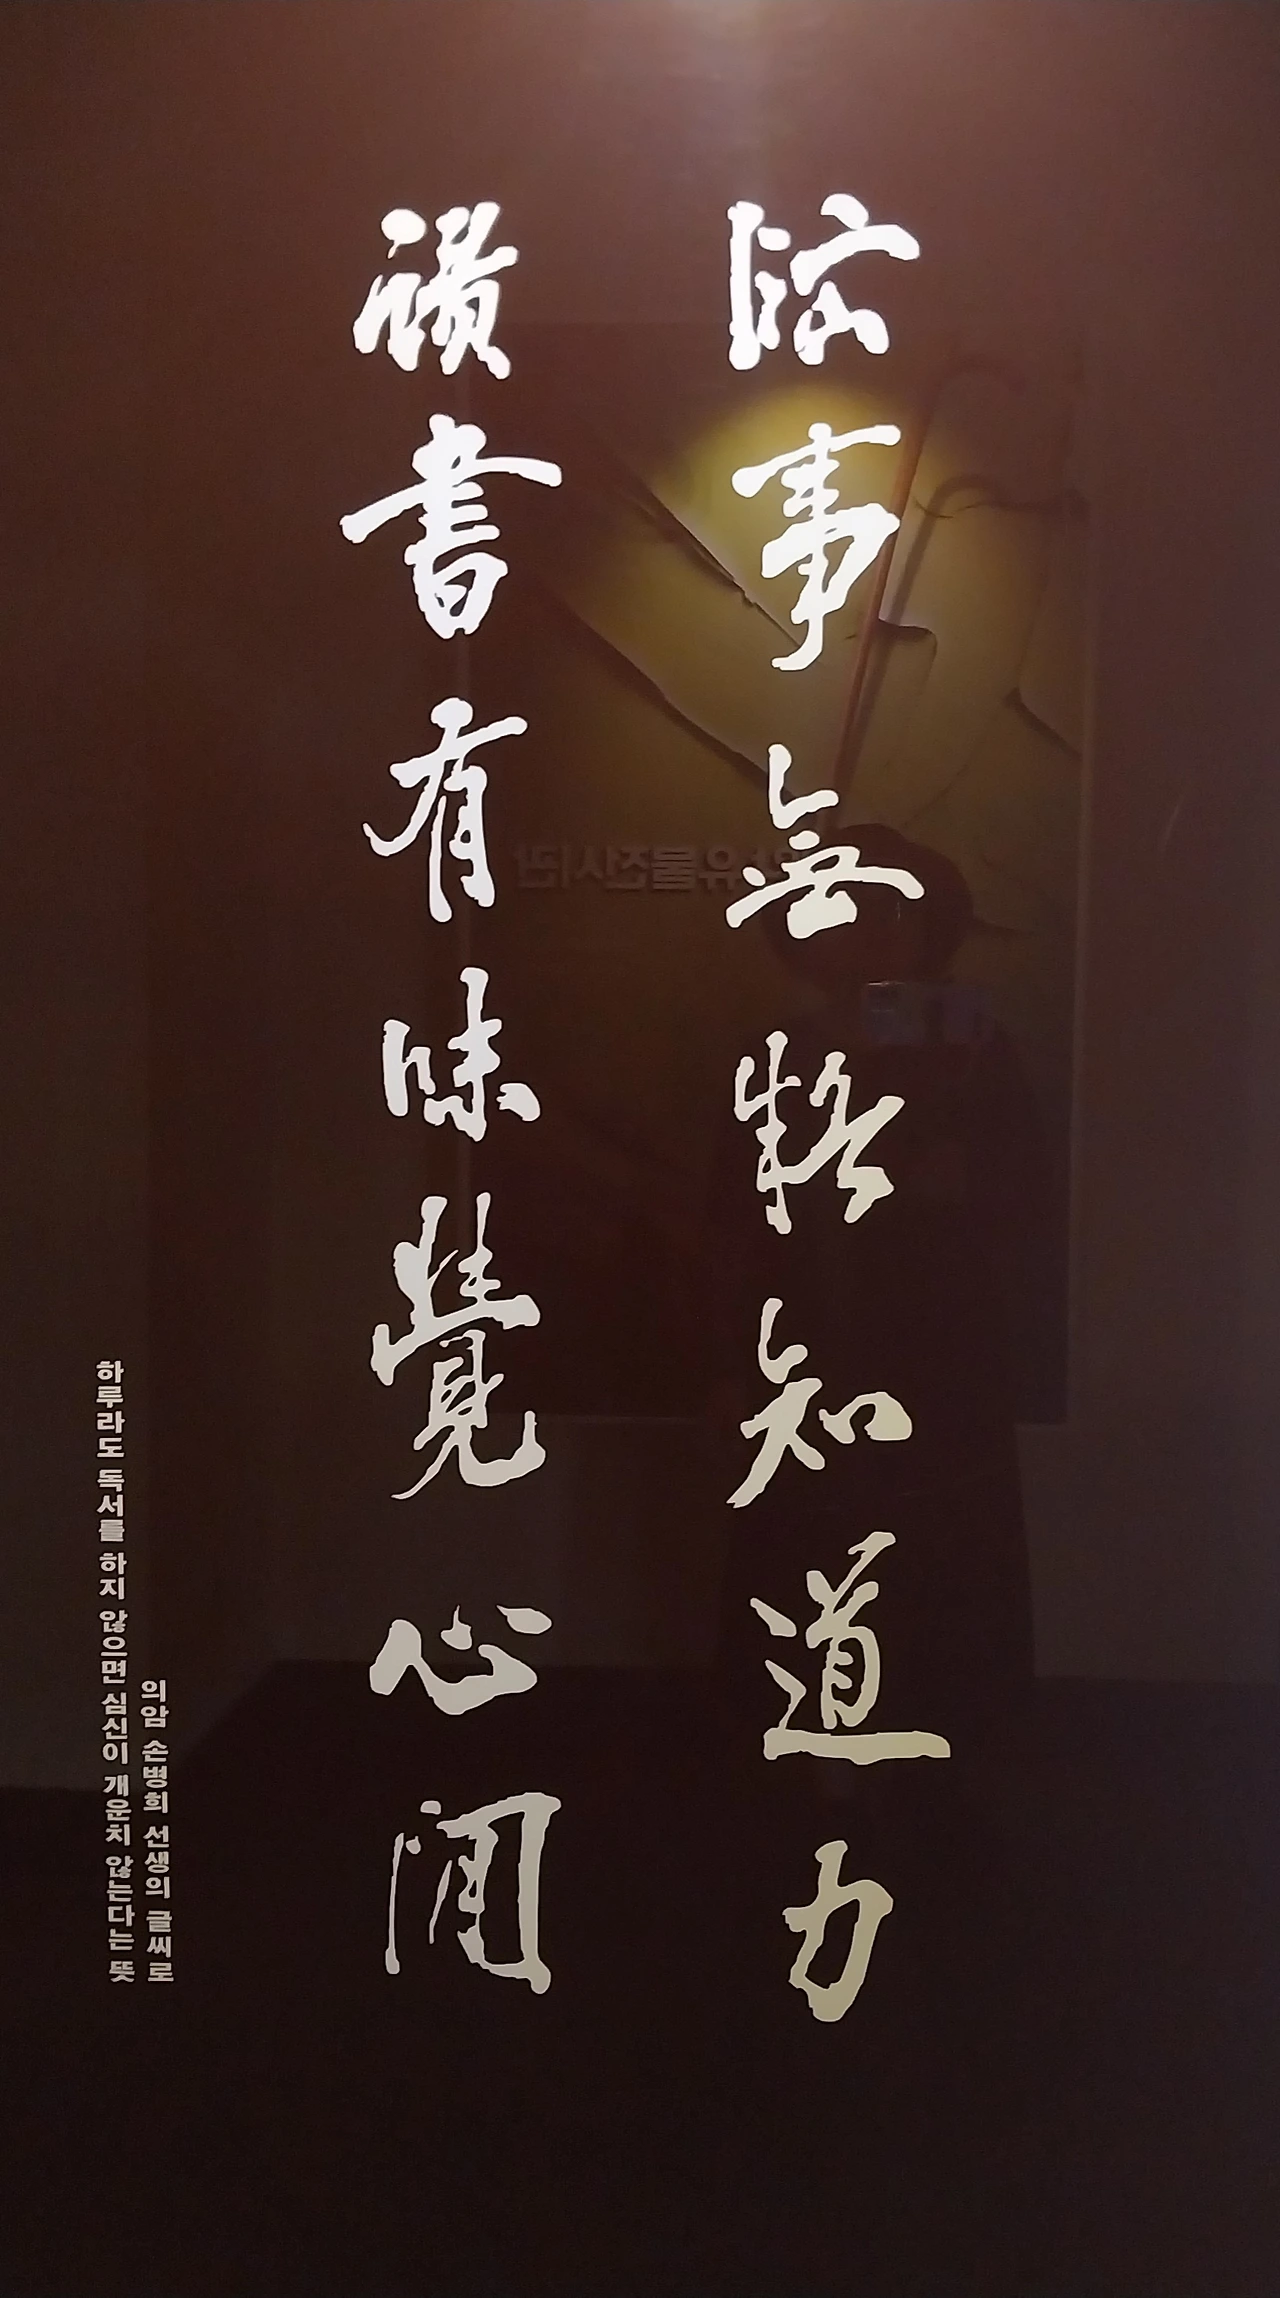 臨事無疑知道力
讀書有味覺心閒
의암 손병희 선생의 글씨로
하루라도 독서를 하지 않으면 심신이 개운치 않는다는 뜻
유물전시관